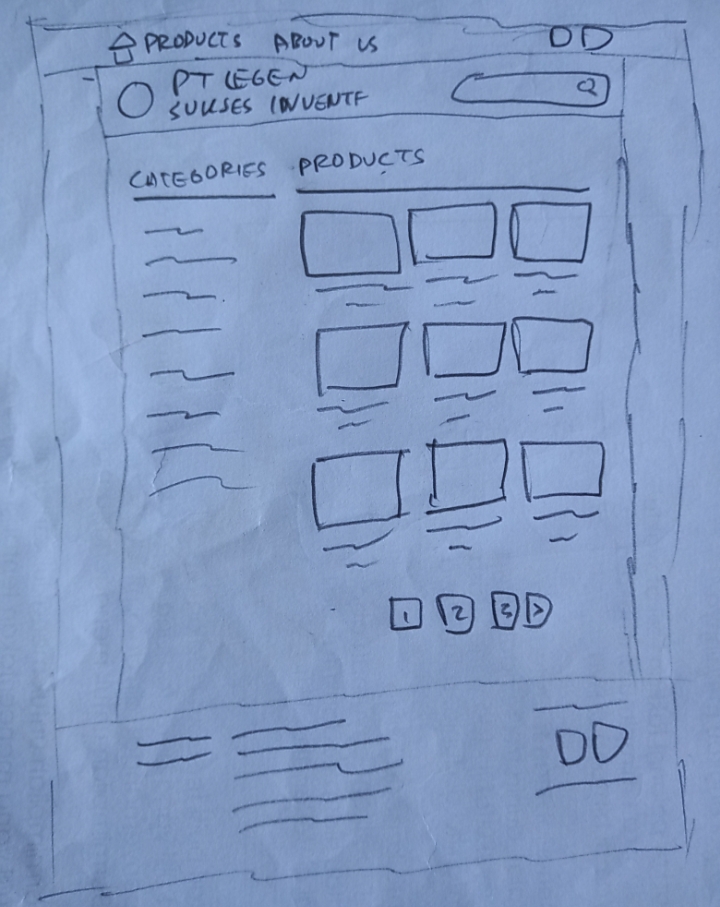 PRODUCTS ABOUT US
PT LEGEN
SUKSES INVENTF
CATEGORIES
PRODUCTS
1 2 3 >